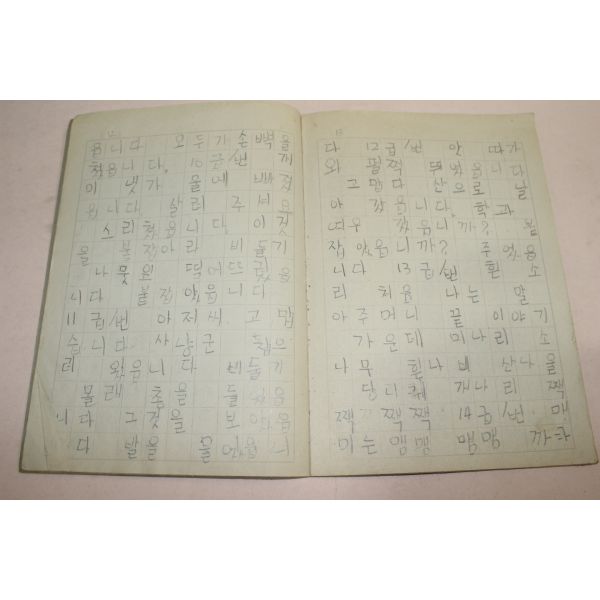 읍니다 모두가 손뼉을
쳤읍니다. 10급/번 게
이 냇가 물에 빠졌
읍니다. 살려 주셔요
소리쳤읍니다. 이것
을 본 작아라 비둘기
나뭇잎 떨어뜨렸읍
니다 붙잡았읍니다
11급/번 아저씨. 고맙
습니다 사냥군 뒤으
레 왔읍니다 비둘기
몰래 총을 들었읍
니다 그것을 보아읍
다 발을 물었읍니
다 12급/번 앗 따가
와 펄쩍 뛰었읍니다
그 맙다 산으로 날
아 갔읍니다. 학과
여우 갔읍니까? 봄
잡았읍니까? 주었읍
니다 13급/번 흰 소
리 처음 나는 말
아주머니 끝 이야기
가운데 미나리 소
나무 흰나비 산나물
당나귀 개나리 짹
짹 짹짹 14급/번 매
미는 맴맴 맴맴 까마